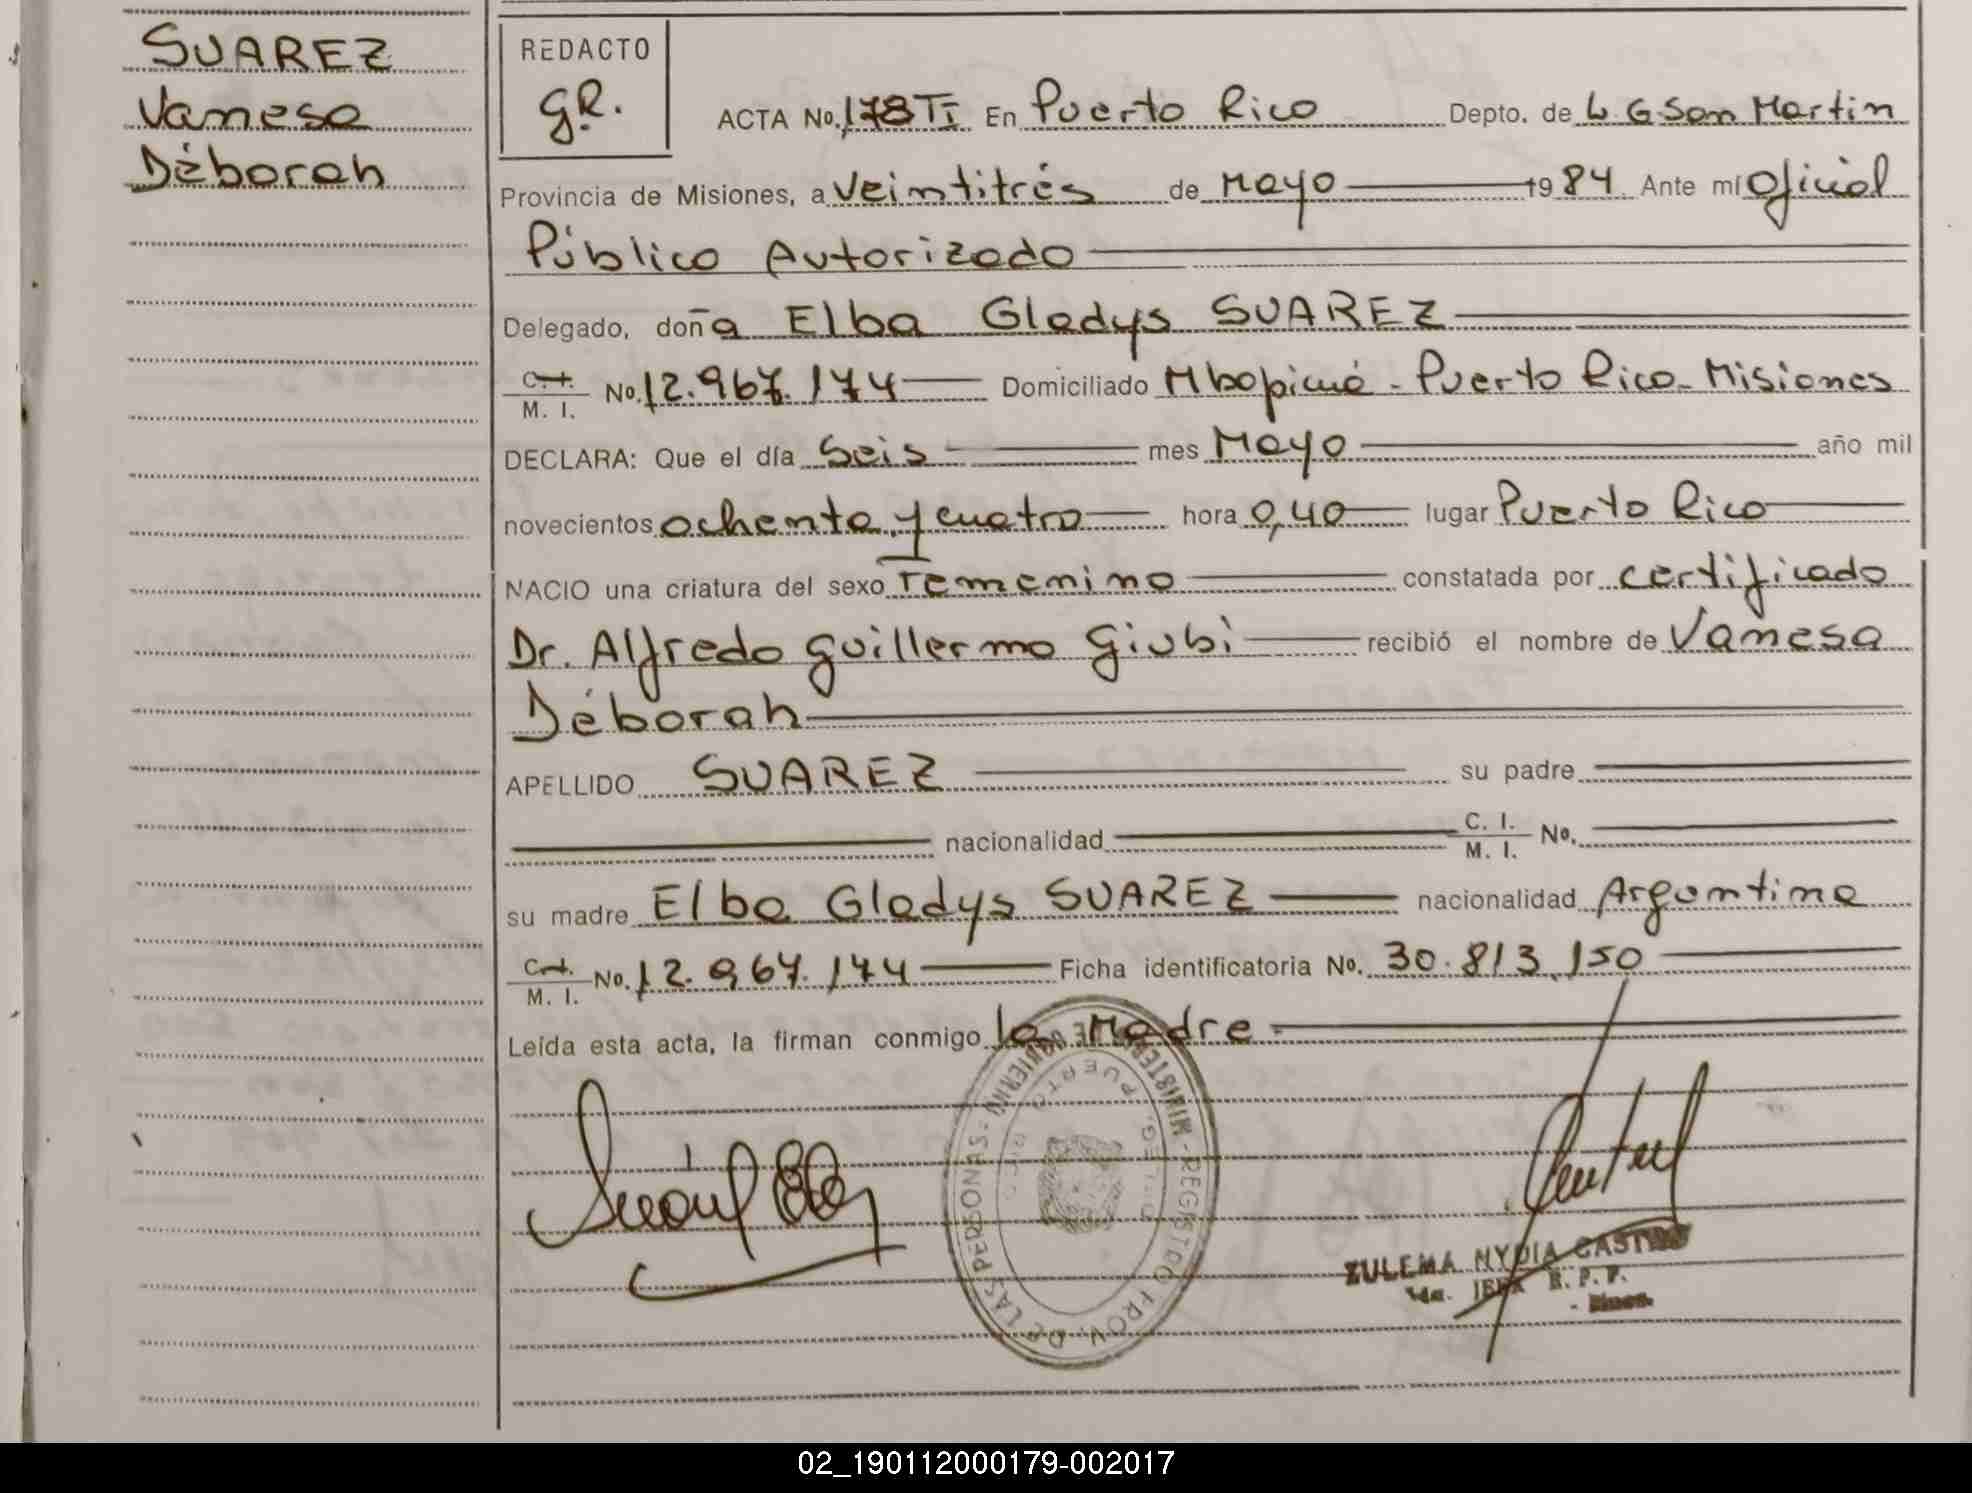 SUAREZ
Vanesa
Déborah
REDACTO
G.R.
ACTA No. 178 TI En Puerto Rico Depto. de L. G San Martin
Provincia de Misiones, a veintitrés de Mayo 1984. Ante mí Oficial
Público Autorizado
Delegado, doña Elba Gladys SUAREZ
C. I. / M. I. No. 12.967.174 Domiciliado Mbopicuá - Puerto Rico - Misiones
DECLARA: Que el día Seis mes Mayo año mil
novecientos ochenta y cuatro hora 0,40 lugar Puerto Rico
NACIO una criatura del sexo Femenino constatada por certificado
Dr. Alfredo Guillermo Giubi recibió el nombre de Vanesa
Déborah
APELLIDO SUAREZ su padre
nacionalidad C. I. / M. I. No.
su madre Elba Gladys SUAREZ nacionalidad Argentina
C. I. / M. I. No. 12.967.174 Ficha identificatoria No. 30.813.150
Leída esta acta, la firman conmigo la Madre
MINISTERIO DE GOBIERNO - REGISTRO PROV. DE LAS PERSONAS
PUERTO RICO
ZULEMA NYDIA CASTRO
R. P. P.
02_190112000179-002017